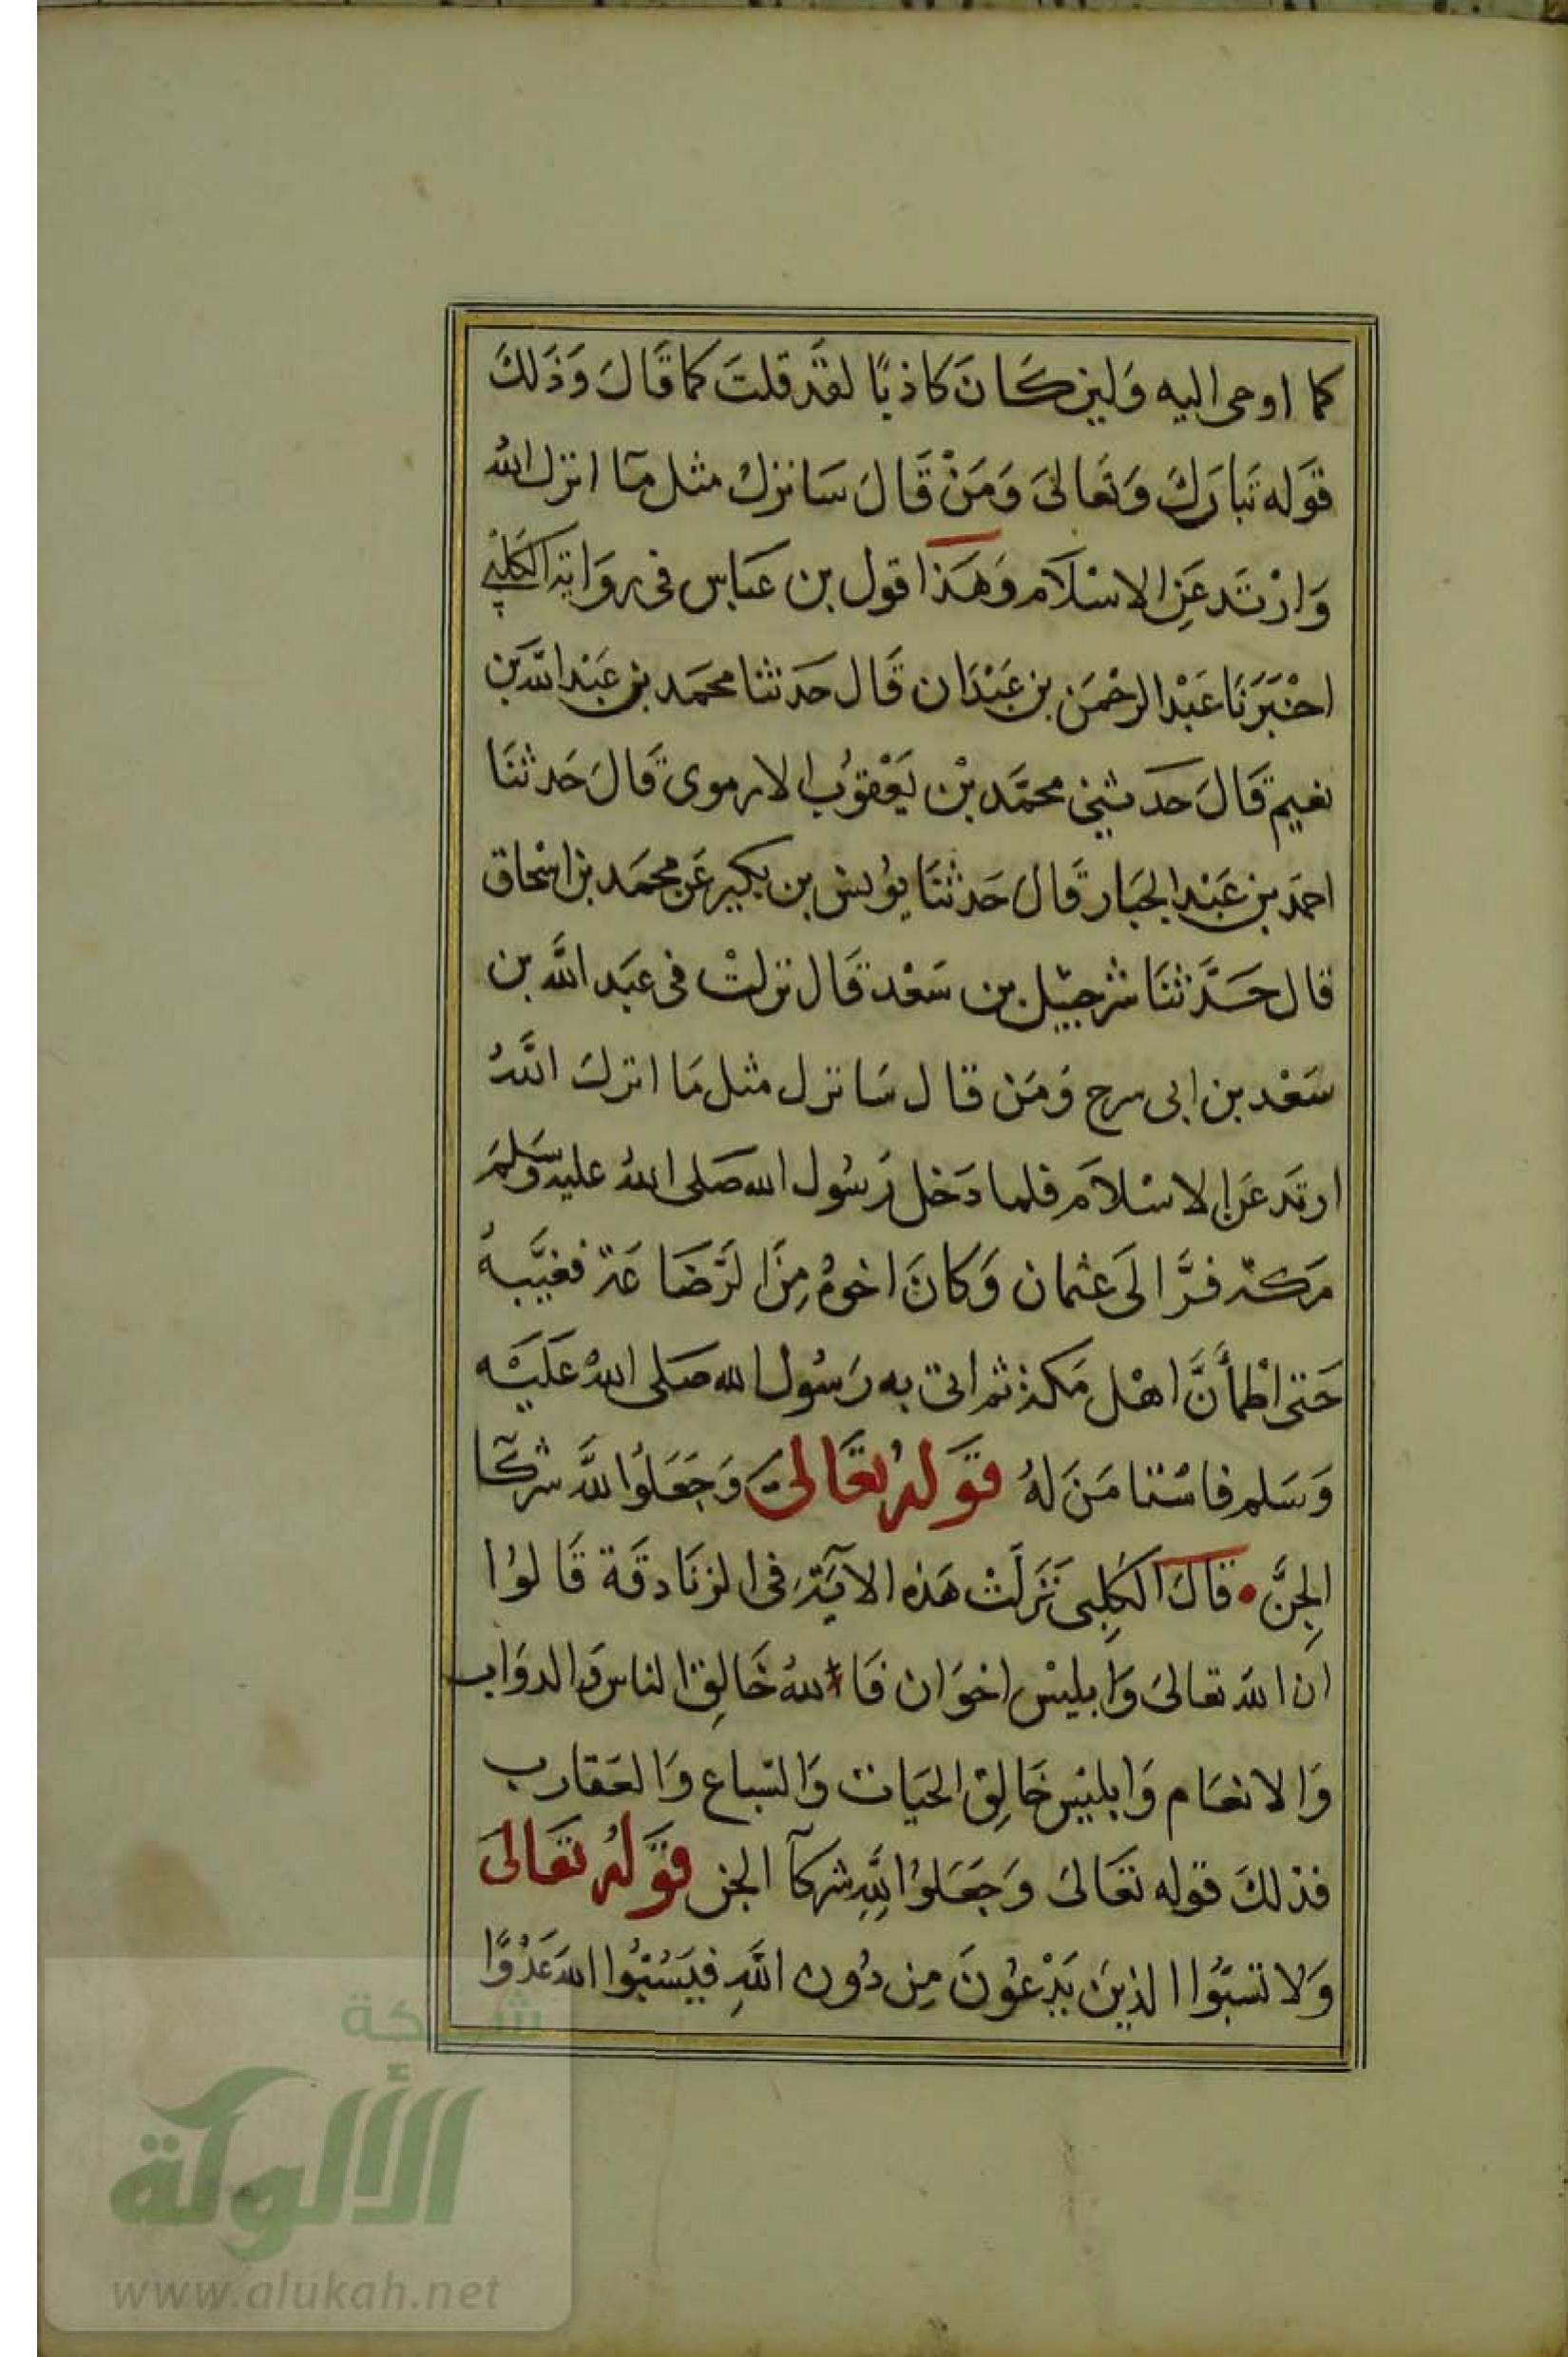 كما اوحى اليه وَلين كَانَ كاذبًا لقَد قلتَ كما قَالَ وَذَلكَ
قوَله تبَارَكَ وَتعَالىَ وَمَنْ قَالَ سَانزلُ مثل مَا انزل اللهُ
وَارْتَد عَنِ الاسْلاَم وَهَذا قول بن عَباس فى روَاية الكَلبى
اخْبَرَنَا عَبْد الرحْمَن بن عَبْدَان قَال حَدثنا محمَد بن عَبْد اللَّه بَن
نعيم قَالَ حَدثنى محمَّد بْن يَعْقوُب الارموى قَالَ حَدثنَا
احمَد بن عَبْد الجبَار قَال حَدثنَا يوُنس بن بكير عَن محمَد بن اسْحاق
قال حَدَّثنَا شرحبيْل بن سَعْد قَال نزلتْ فى عبَد اللَّه بن
سَعْد بن ابى سرح وَمَن قال سَانزل مثل مَا انزلَ اللَّهُ
ارتَد عَن الاسْلاَم فلما دَخل رَسُول الله صَلى اللهُ عليه وَسَلمَ
مَكة فرَّ الَى عثمان وَكانَ اخوهُ مِنَ الرَّضَاعَة فغيَّبهُ
حَتى اطْمأَنَّ اهْل مَكة ثم اتى به رَسُول الله صَلى اللهُ عَلَيْه
وَسَلم فاسْتامَنَ لهُ قَوَلهُ تعَالىَ وَجَعَلوُا للَّه شركَآ
الجِنَّ • قالَ الكَلِبى نَزَلَتْ هَذه الآيَة فى الزنَادقَة قَالوُا
ان الله تعالىَ وَابليْس اخوَان فَاللهُ خَالِق الناس وَالدوَاب
وَالانعَام وَابليْس خَالِق الحيَات وَالسّباع وَالعَقارب
فذلكَ قوله تعَالىَ وَجَعَلوُا لِلَّهِ شركآ الجن قوَلهُ تعَالىَ
وَلا تسَبّوُا الذينَ يَدْعوُنَ مِن دُون اللَّهِ فيَسُبّوُا اللهَ عَدْوًا
شبكة
الألوكة
www.alukah.net